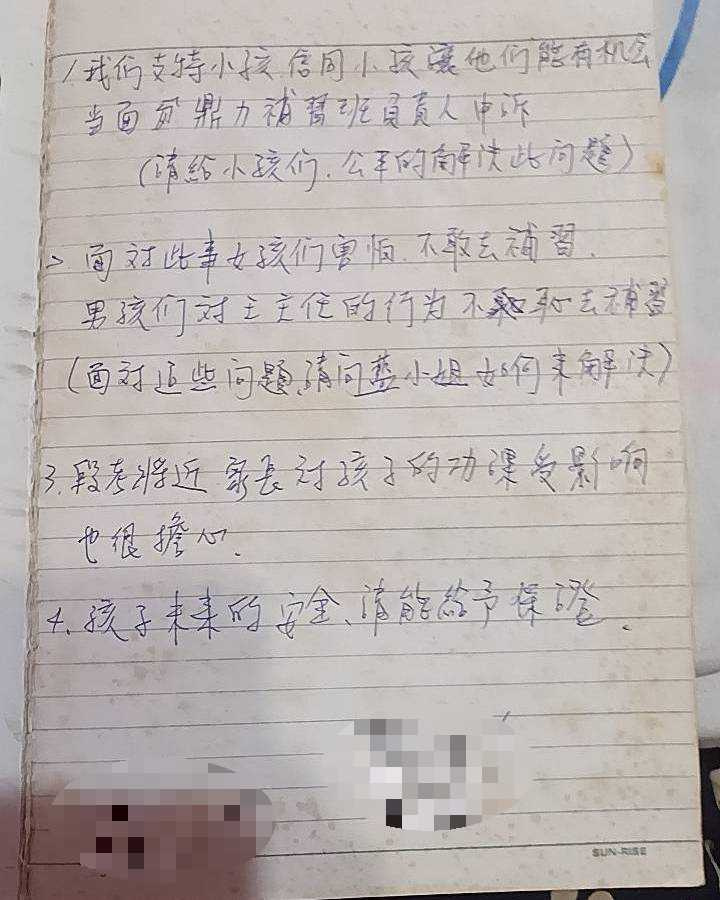 1.我们支持小孩.信同小孩讓他们能有机会
当面向鼎力補習班負責人申诉
(請給小孩们.公平的解决此问题)
2 面对此事女孩们害怕.不敢去補習.
男孩们对王主任的行为不敢去補習
(面对这些问题,請问藍小姐如何来解决)
3.段考将近 家長对孩子的功課受影响
也很擔心.
4.孩子未來的安全、請能給予保證.
SUN-RISE